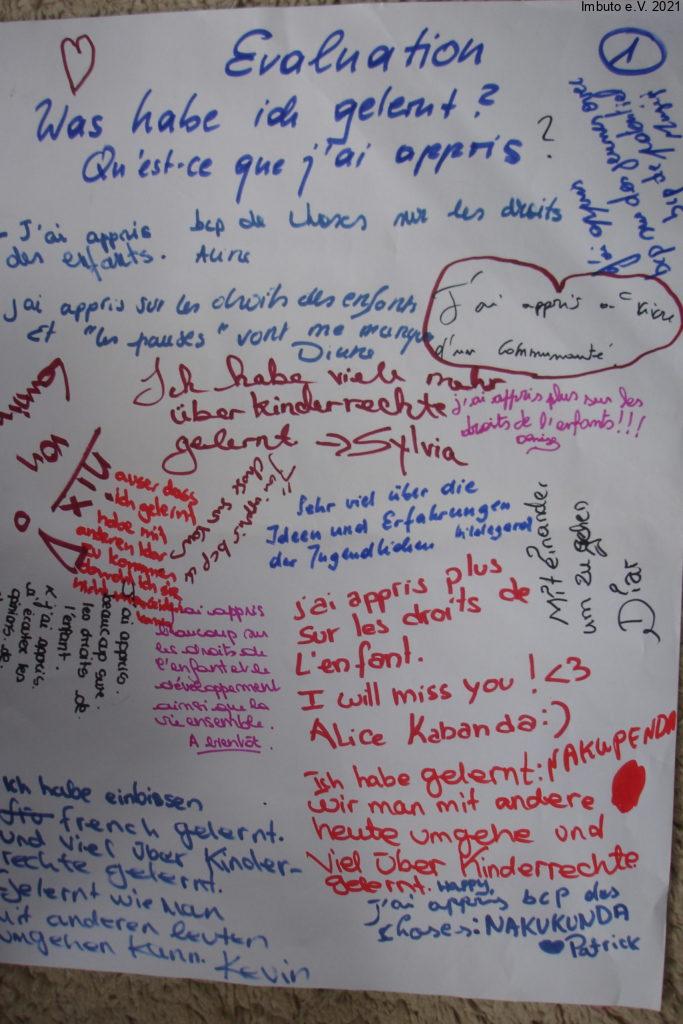 Imbuto e.V. 2021
1
Evaluation
Was habe ich gelernt?
Qu'est-ce que j'ai appris ?
- J'ai appris bcp de choses sur les droits
des enfants. Aline
J'ai appris sur les droits des enfants
Et "les pauses" vont me manquer
Diane
J'ai appris à vivre
d'un communauté.
Ich habe viele mehr
über kinderrechte
gelernt → Sylvia
j'ai appris plus sur les
droits de l'enfants!!!
Denise
nix
auser dass
ich gelernt
habe mit
anderen klar
zu kommen
obwohl ich sie
J'ai appris bcp de
chose sur
Sehr viel über die
Ideen und Erfahrungen
der Jugendlichen Hildegard
Miteinander
umzugehen
Diar
j'ai appris.
beaucoup sur.
les droits de.
l'enfant.
k j'ai appris.
a écouter les
opinions de.
j'ai appris
beaucoup sur
les droits de
l'enfant et le
développement
ainsi que la
vie ensemble.
A bientôt.
j'ai appris plus
sur les droits de
L'enfant.
I will miss you ! <3
Alice Kabanda :)
Ich habe gelernt: NAKUPENDA
wir man mit andere
heute umgehe und
viel über Kinderrechte
gelernt.
Ich habe einbissen
french gelernt.
und viel über Kinder-
rechte gelernt.
-gelernt wie man
mit anderen leuten
umgehen kann. Kevin
Happy,
j'ai appris bcp des
choses: NAKUKUNDA
Patrick